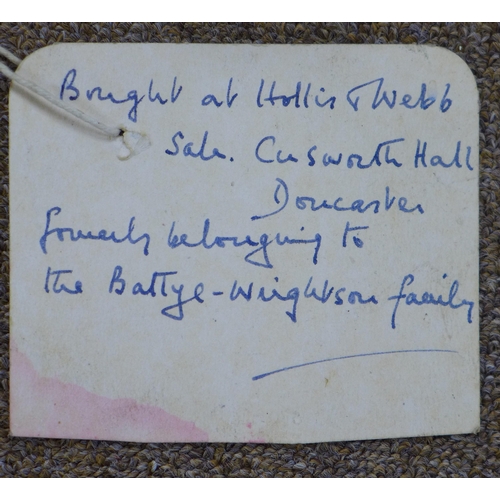 Bought at Hollis & Webb
Sale. Cusworth Hall
Doncaster
formerly belonging to
the Battye-Wrightson family